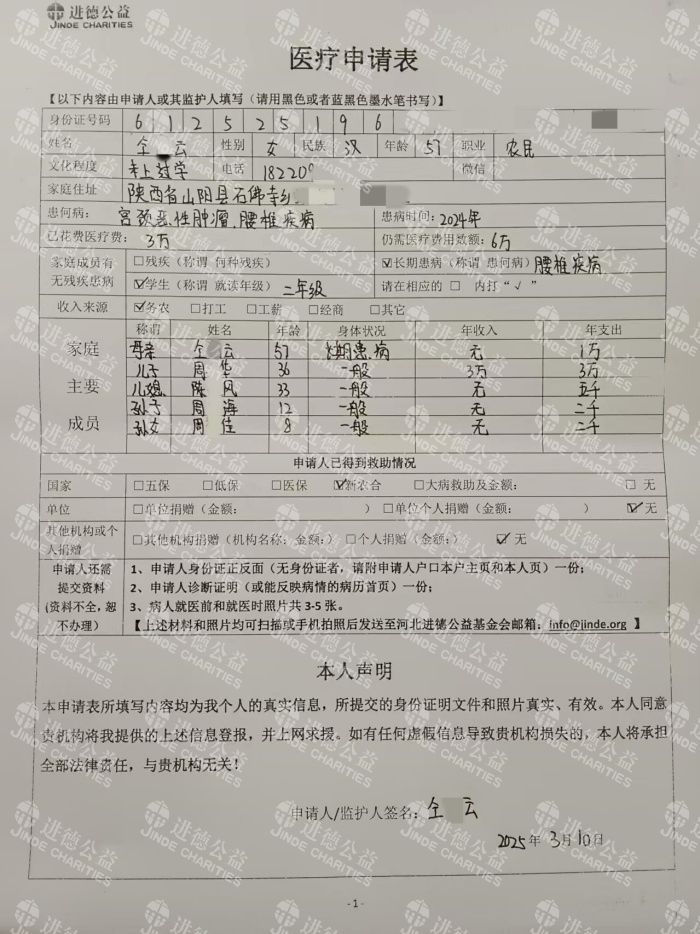 进德公益
JINDE CHARITIES
医疗申请表
【以下内容由申请人或其监护人填写（请用黑色或者蓝黑色墨水笔书写）】
身份证号码 6 1 2 5 2 5 1 9 6
姓名 仝 云 性别 女 民族 汉 年龄 57 职业 农民
文化程度 未上过学 电话 18220 微信
家庭住址 陕西省山阳县石佛寺乡
患何病：宫颈恶性肿瘤、腰椎疾病 患病时间：2024年
已花费医疗费：3万 仍需医疗费用数额：6万
家庭成员有无残疾患病 □残疾（称谓 何种残疾） ☑长期患病（称谓 患何病）腰椎疾病
☑学生（称谓 就读年级）二年级 请在相应的 □ 内打“√”
收入来源 ☑务农 □打工 □工薪 □经商 □其它
家庭主要成员 称谓 姓名 年龄 身体状况 年收入 年支出
母亲 仝 云 57 长期患病 无 1万
儿子 周 华 36 一般 3万 3万
儿媳 陈 风 33 一般 无 五千
孙子 周 海 12 一般 无 二千
孙女 周 佳 8 一般 无 二千
申请人已得到救助情况
国家 □五保 □低保 □医保 ☑新农合 □大病救助及金额： □ 无
单位 □单位捐赠（金额： ） □单位个人捐赠（金额： ） ☑无
其他机构或个人捐赠 □其他机构捐赠（机构名称：金额：） □个人捐赠（金额：） ☑ 无
申请人还需提交资料（资料不全，恕不办理） 1、申请人身份证正反面（无身份证者，请附申请人户口本户主页和本人页）一份；
2、申请人诊断证明（或能反映病情的病历首页）一份；
3、病人就医前和就医时照片共 3-5 张。
【上述材料和照片均可扫描或手机拍照后发送至河北进德公益基金会邮箱：info@jinde.org 】
本人声明
本申请表所填写内容均为我个人的真实信息，所提交的身份证明文件和照片真实、有效。本人同意
贵机构将我提供的上述信息登报，并上网求援。如有任何虚假信息导致贵机构损失的，本人将承担
全部法律责任，与贵机构无关！
申请人/监护人签名：仝 云
2025年 3月10日
- 1 -